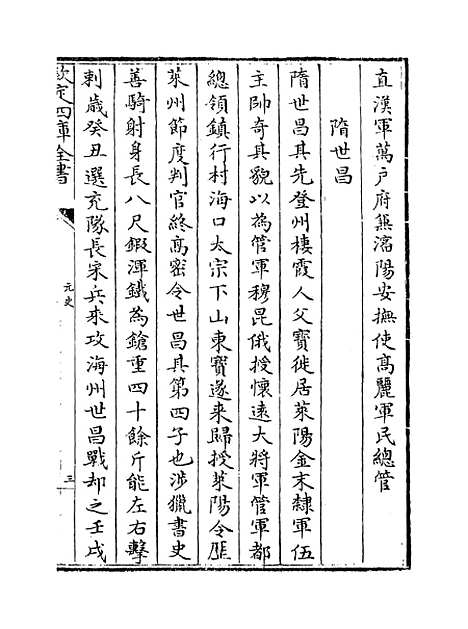 直漢軍萬戶府兼瀋陽安撫使髙麗軍民總管
隋世昌
隋世昌其先登州棲霞人父寳徙居萊陽金末隸軍伍
主帥奇其貌以為管軍穆昆俄授懷遠大將軍管軍都
總領鎮行村海口太宗下山東寳遂来歸授萊陽令厯
萊州節度判官終髙密令世昌其第四子也涉獵書史
善騎射身長八尺鍜渾鐵為鎗重四十餘斤能左右擊
刺歲癸丑選充隊長宋兵来攻海州世昌戰却之壬戌
欽定四庫全書
元史
三